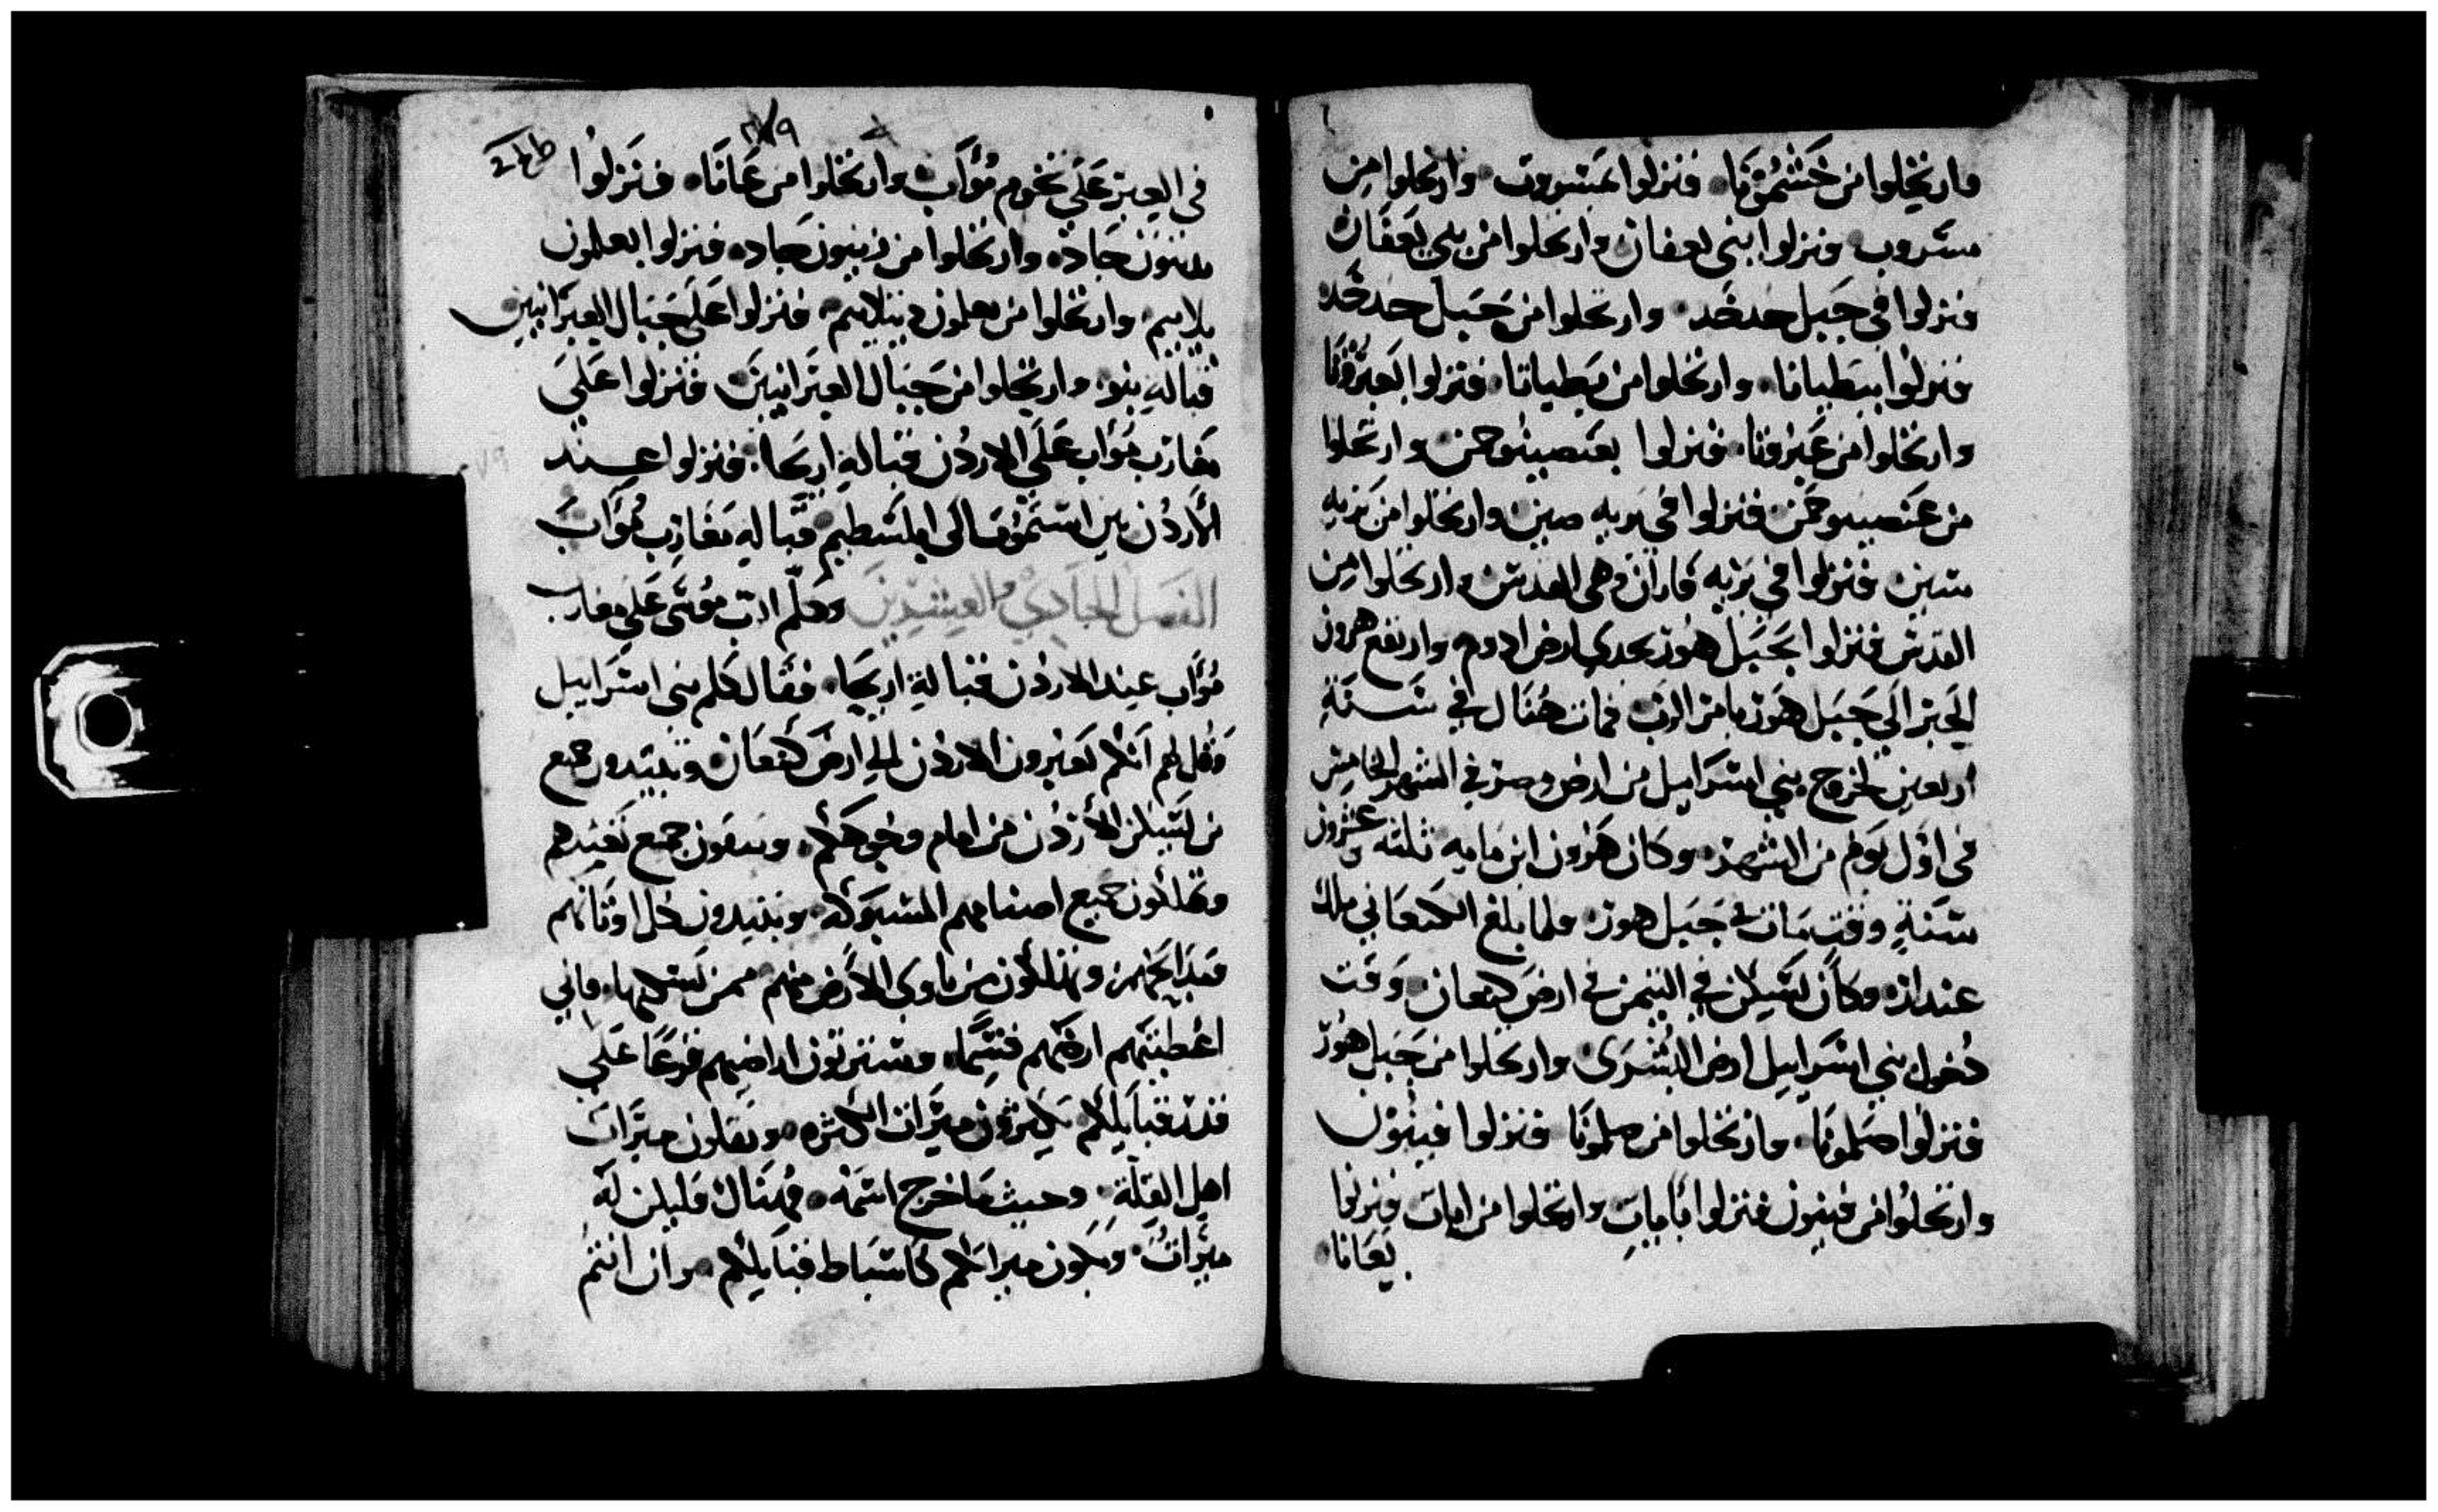 وارتحلوا من حَشْمُوْنَا فنزلوا بمسروت وارتحلوا مِن
مسروت ونزلوا ببني يعقان وارتحلوا من بني يَعقَان
فنزلوا في جَبل حدحَد وارتحلوا من جَبل حدحَد
فنزلوا ببَطباتا وارتحلوا من يَطباتا فنزلوا بعَبرُونَا
وارتحلوا من عَبرُونَا فنزلوا بعَصيون حبر وارتحلوا
من عَصيون حبر فنزلوا في بريه صين وارتحلوا من بَريه
سين فنزلوا في بَريه فاران وهي القدس وارتحلوا مِن
القدس فنزلوا بجَبَل هُور بحدي ارض ادوم وارتفع هرون
الحَبر الَي جَبَل هَور بامر الرب فمات هُنَاك في سَنَةِ
اربعين لخروج بني اسرَايل من ارض مصر في الشهر الخامِس
في اول يَوم من الشهر وكان هَرون ابن مايه ثلثه وعشرون
سَنَةٍ وقت مَات في جَبَل هور ولما بلغ الكنعَاني ملك
عنداد وكان يَسكن في التيمن في ارض كنعان وَقت
دُخول بني اسرَايل ارض البُشرَى وارتحلوا من جَبل هُور
فنزلوا صَلمونَا وارتحلوا من صلمونَا فنزلوا فينون
وارتحلُوا من فينون فنزلوا بابات وارتحلوا من ابات فنزلوا
بَعَانا
٢٧٩
في العِبر عَلَي تخوم مُؤَاب وارتحلوا من عَانَا فنَزلُوا
بدنبون جَاد وارتحلوا من دنبون جَاد فنزلوا بعلمون
بلاييم وارتحلوا من علمون دبيلاييم فنزلوا عَلَى جبَال العِبرَانيين
قبالةِ بنو وارتحلوا من جَبَال العِبرَانيين فنزلوا عَلَي
مَغارب مُؤاب عَلَى الاردُن قبالةِ اريحا فنزلوا عِند
الأردُن بين استمُوف الى ابل شطيم قبالةِ مَغارِب مُؤاب
الفَصل الحَادي والعِشرِينَ وكَلم الرب مُوسَى عَلَي مغارب
مُؤَاب عِند الاردُن قبالةِ اريحَا فقَال كلم بني اسرَايل
وَقُل لهم انَكم تَعبُرون الاردُن الي ارضَ كنعَان وتبيدون جميع
من يَسكن الأردُن من امام وجُوهَكُم وتنفون جميع نَفيدهم
وتهلكون جميع اصنامهم المسبوكه وتبيدون كل اوثانهم
وتهلكون من ماوي الأرض منهم ممن يَسكنها فاني
اعُطيتَكم ارضَهم قسِمًا وستَرثون اراضيهم قرعًا عَلَي
قدر قبايَلِكم تكِثرُون ميرَاث الكثره وتقلون ميرَاث
اهل القلّة وحيث مَا خرج اسمَه فهُنَاك فليكن لَه
ميَراثُ وَيكون ميراثكم كاسبَاط قبايلِكم وان انتمُ